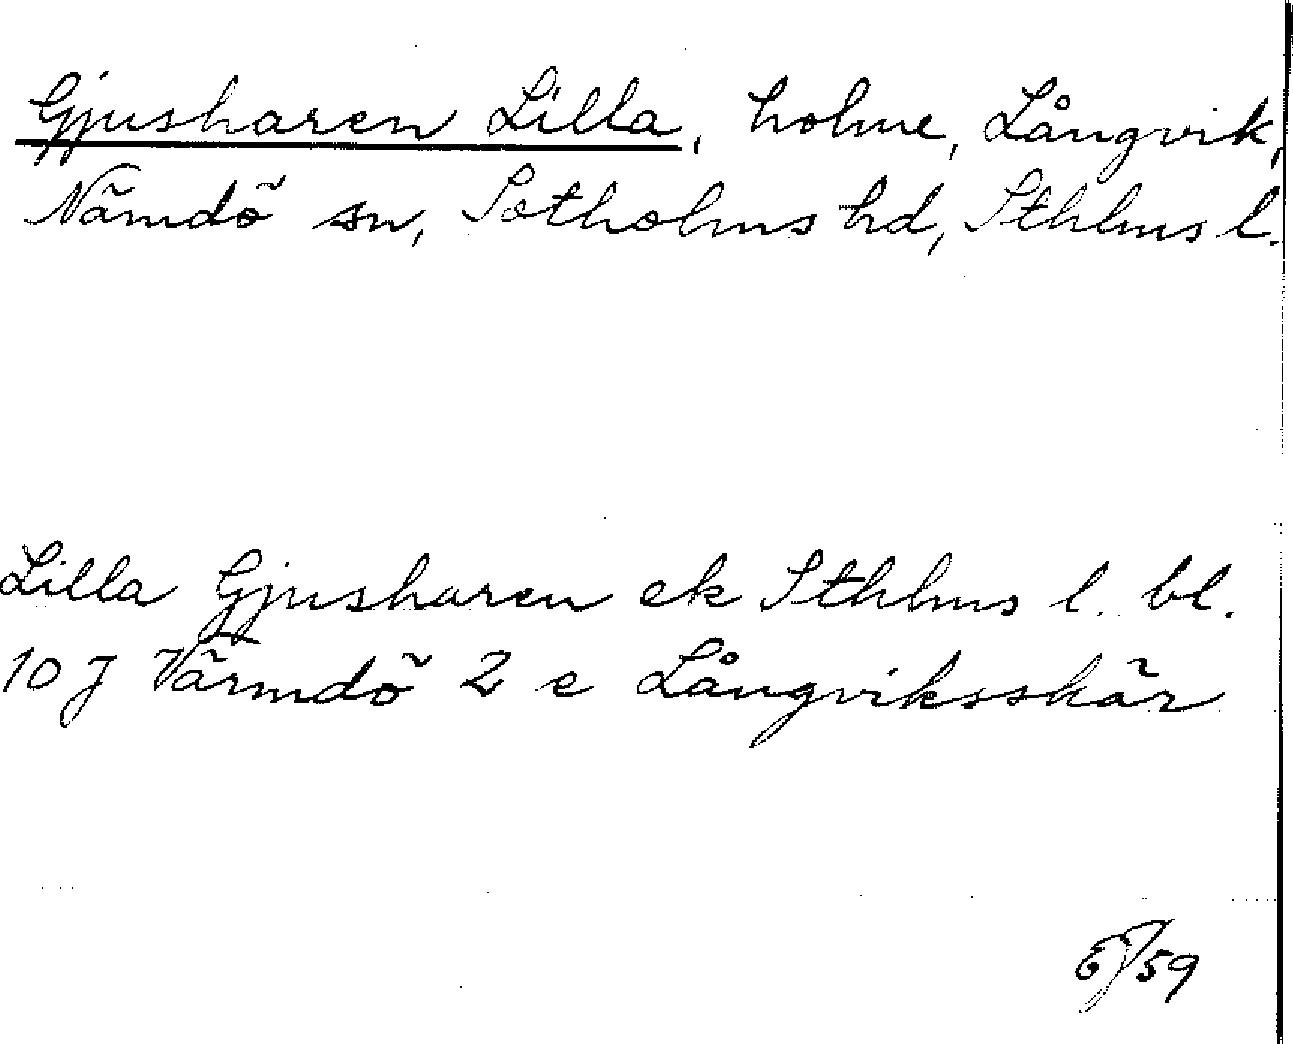 Gjusharen Lilla, holme, Långvik,
Nämdö sn, Sotholms hd, Sthlms l.
Lilla Gjusharen ek Sthlms l. bl.
10 J Värmdö 2 e Långviksskär
59